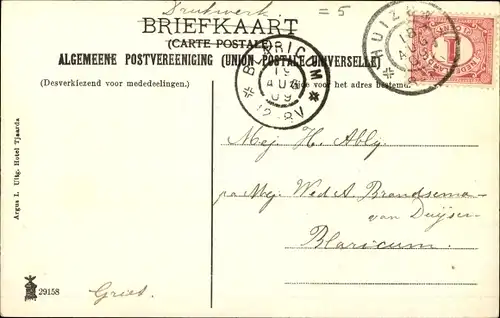 Drukwerk = 5
BRIEFKAART
(CARTE POSTALE)
ALGEMEENE POSTVEREENIGING (UNION POSTALE UNIVERSELLE)
(Desverkiezend voor mededeelingen.)
Zijde voor het adres bestemd.
BLARICUM
19
AUG
09
12-8V
HUIZEN
18
AUG
1
Mej. H. Ably.
p/a Mej. Wed A. Brandsema-
van Duijsen
Blaricum.
Argus I. Uitg. Hotel Tjaarda
29158
Griet.